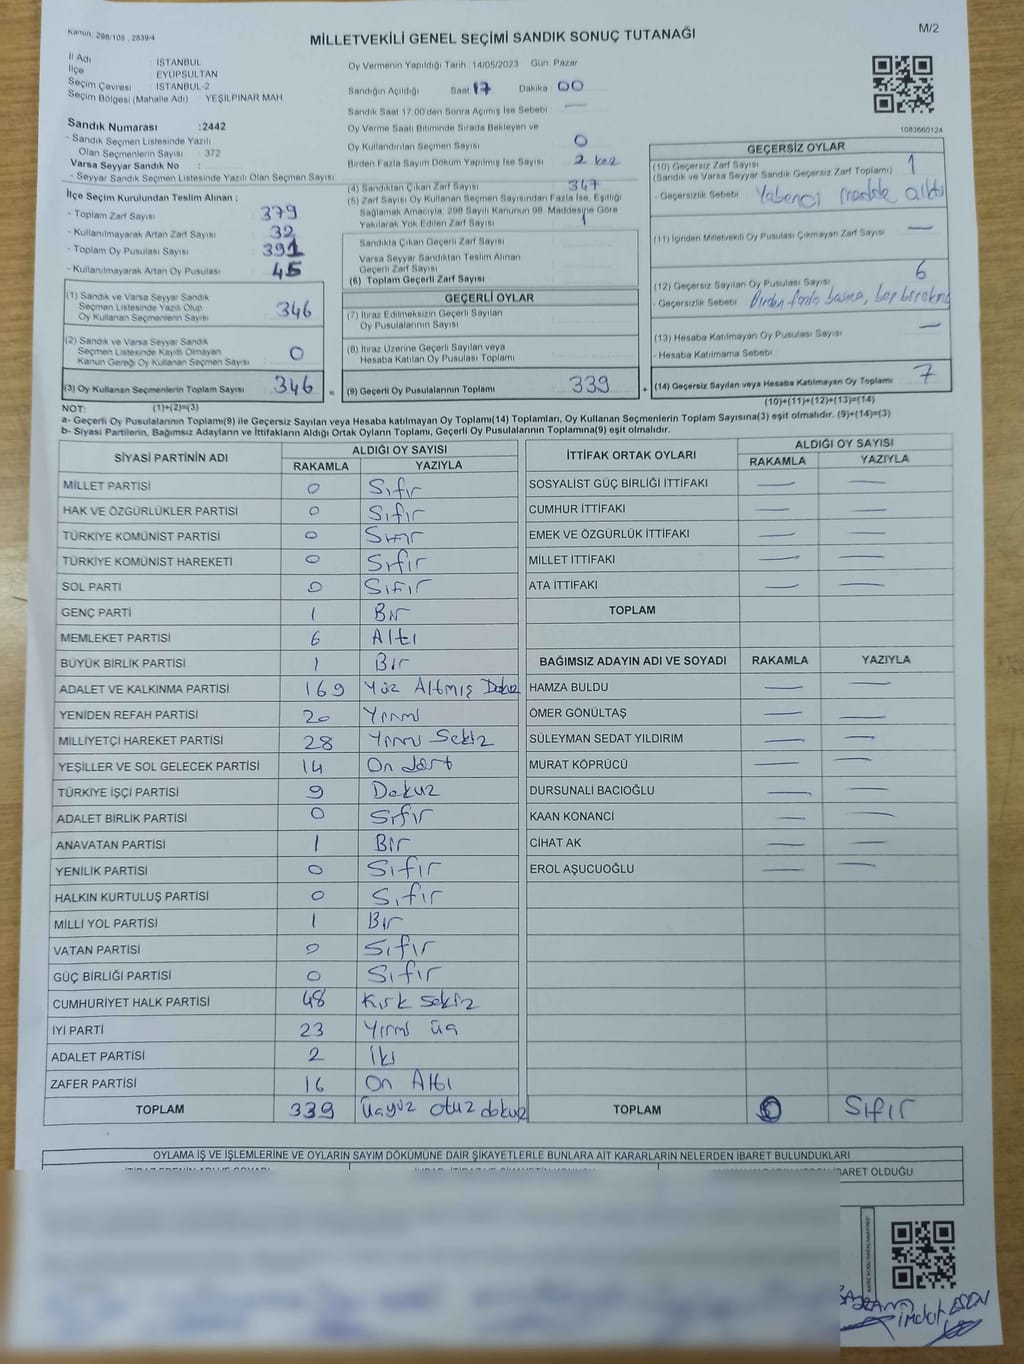 Kanun; 298/105 , 2839/4
M/2
MİLLETVEKİLİ GENEL SEÇİMİ SANDIK SONUÇ TUTANAĞI
İl Adı : İSTANBUL
İlçe : EYÜPSULTAN
Seçim Çevresi : İSTANBUL-2
Seçim Bölgesi (Mahalle Adı) YEŞİLPINAR MAH.
Sandık Numarası :2442
- Sandık Seçmen Listesinde Yazılı
Olan Seçmenlerin Sayısı : 372
Varsa Seyyar Sandık No :
- Seyyar Sandık Seçmen Listesinde Yazılı Olan Seçmen Sayısı
Oy Vermenin Yapıldığı Tarih: 14/05/2023 Gün: Pazar
Sandığın Açıldığı Saat 17 Dakika 00
Sandık Saat 17.00'den Sonra Açımış İse Sebebi : —
Oy Verme Saati Bitiminde Sırada Bekleyen ve
Oy Kullandırılan Seçmen Sayısı 0
Birden Fazla Sayım Döküm Yapılmış İse Sayısı 2 kez
1083660124
İlçe Seçim Kurulundan Teslim Alınan ;
- Toplam Zarf Sayısı 379
- Kullanılmayarak Artan Zarf Sayısı 32
- Toplam Oy Pusulası Sayısı 391
- Kullanılmayarak Artan Oy Pusulası 45
(1) Sandık ve Varsa Seyyar Sandık
Seçmen Listesinde Yazılı Olup
Oy Kullanan Seçmenlerin Sayısı 346
(2) Sandık ve Varsa Seyyar Sandık
Seçmen Listesinde Kayıtlı Olmayan
Kanun Gereği Oy Kullanan Seçmen Sayısı 0
(3) Oy Kullanan Seçmenlerin Toplam Sayısı 346
=
(4) Sandıktan Çıkan Zarf Sayısı 347
(5) Zarf Sayısı Oy Kullanan Seçmen Sayısından Fazla İse, Eşitliği
Sağlamak Amacıyla, 298 Sayılı Kanunun 98. Maddesine Göre
Yakılarak Yok Edilen Zarf Sayısı 1
Sandıkta Çıkan Geçerli Zarf Sayısı
Varsa Seyyar Sandıktan Teslim Alınan
Geçerli Zarf Sayısı
(6) Toplam Geçerli Zarf Sayısı
GEÇERLİ OYLAR
(7) İtiraz Edilmeksizin Geçerli Sayılan
Oy Pusulalarının Sayısı
(8) İtiraz Üzerine Geçerli Sayılan veya
Hesaba Katılan Oy Pusulası Toplamı
(9) Geçerli Oy Pusulalarının Toplamı 339
+
GEÇERSİZ OYLAR
(10) Geçersiz Zarf Sayısı
(Sandık ve Varsa Seyyar Sandık Geçersiz Zarf Toplamı) 1
- Geçersizlik Sebebi Yabancı madde atıldı
(11) İçinden Milletvekili Oy Pusulası Çıkmayan Zarf Sayısı —
(12) Geçersiz Sayılan Oy Pusulası Sayısı 6
- Geçersizlik Sebebi Birden fazla basma,
(13) Hesaba Katılmayan Oy Pusulası Sayısı —
- Hesaba Katılmama Sebebi
(14) Geçersiz Sayılan veya Hesaba Katılmayan Oy Toplamı 7
NOT: (1)+(2)=(3)
(10)+(11)+(12)+(13)=(14)
a- Geçerli Oy Pusulalarının Toplamı(9) ile Geçersiz Sayılan veya Hesaba katılmayan Oy Toplamı(14) Toplamları, Oy Kullanan Seçmenlerin Toplam Sayısına(3) eşit olmalıdır. (9)+(14)=(3)
b- Siyasi Partilerin, Bağımsız Adayların ve İttifakların Aldığı Ortak Oyların Toplamı, Geçerli Oy Pusulalarının Toplamına(9) eşit olmalıdır.
SİYASİ PARTİNİN ADI ALDIĞI OY SAYISI
RAKAMLA YAZIYLA
MİLLET PARTİSİ 0 Sıfır
HAK VE ÖZGÜRLÜKLER PARTİSİ 0 Sıfır
TÜRKİYE KOMÜNİST PARTİSİ 0 Sıfır
TÜRKİYE KOMÜNİST HAREKETİ 0 Sıfır
SOL PARTİ 0 Sıfır
GENÇ PARTİ 1 Bir
MEMLEKET PARTİSİ 6 Altı
BÜYÜK BİRLİK PARTİSİ 1 Bir
ADALET VE KALKINMA PARTİSİ 169 Yüz Altmış Dokuz
YENİDEN REFAH PARTİSİ 20 Yirmi
MİLLİYETÇİ HAREKET PARTİSİ 28 Yirmi Sekiz
YEŞİLLER VE SOL GELECEK PARTİSİ 14 On dört
TÜRKİYE İŞÇİ PARTİSİ 9 Dokuz
ADALET BİRLİK PARTİSİ 0 Sıfır
ANAVATAN PARTİSİ 1 Bir
YENİLİK PARTİSİ 0 Sıfır
HALKIN KURTULUŞ PARTİSİ 0 Sıfır
MİLLİ YOL PARTİSİ 1 Bir
VATAN PARTİSİ 0 Sıfır
GÜÇ BİRLİĞİ PARTİSİ 0 Sıfır
CUMHURİYET HALK PARTİSİ 48 Kırk sekiz
İYİ PARTİ 23 Yirmi üç
ADALET PARTİSİ 2 İki
ZAFER PARTİSİ 16 On Altı
TOPLAM 339 üçyüz otuz dokuz
İTTİFAK ORTAK OYLARI ALDIĞI OY SAYISI
RAKAMLA YAZIYLA
SOSYALİST GÜÇ BİRLİĞİ İTTİFAKI — —
CUMHUR İTTİFAKI — —
EMEK VE ÖZGÜRLÜK İTTİFAKI — —
MİLLET İTTİFAKI — —
ATA İTTİFAKI — —
TOPLAM
BAĞIMSIZ ADAYIN ADI VE SOYADI RAKAMLA YAZIYLA
HAMZA BULDU — —
ÖMER GÖNÜLTAŞ — —
SÜLEYMAN SEDAT YILDIRIM — —
MURAT KÖPRÜCÜ — —
DURSUNALİ BACIOĞLU — —
KAAN KONANCI — —
CİHAT AK — —
EROL AŞUCUOĞLU — —
TOPLAM 0 Sıfır
OYLAMA İŞ VE İŞLEMLERİNE VE OYLARIN SAYIM DÖKÜMÜNE DAİR ŞİKAYETLERLE BUNLARA AİT KARARLARIN NELERDEN İBARET BULUNDUKLARI
İBARET OLDUĞU